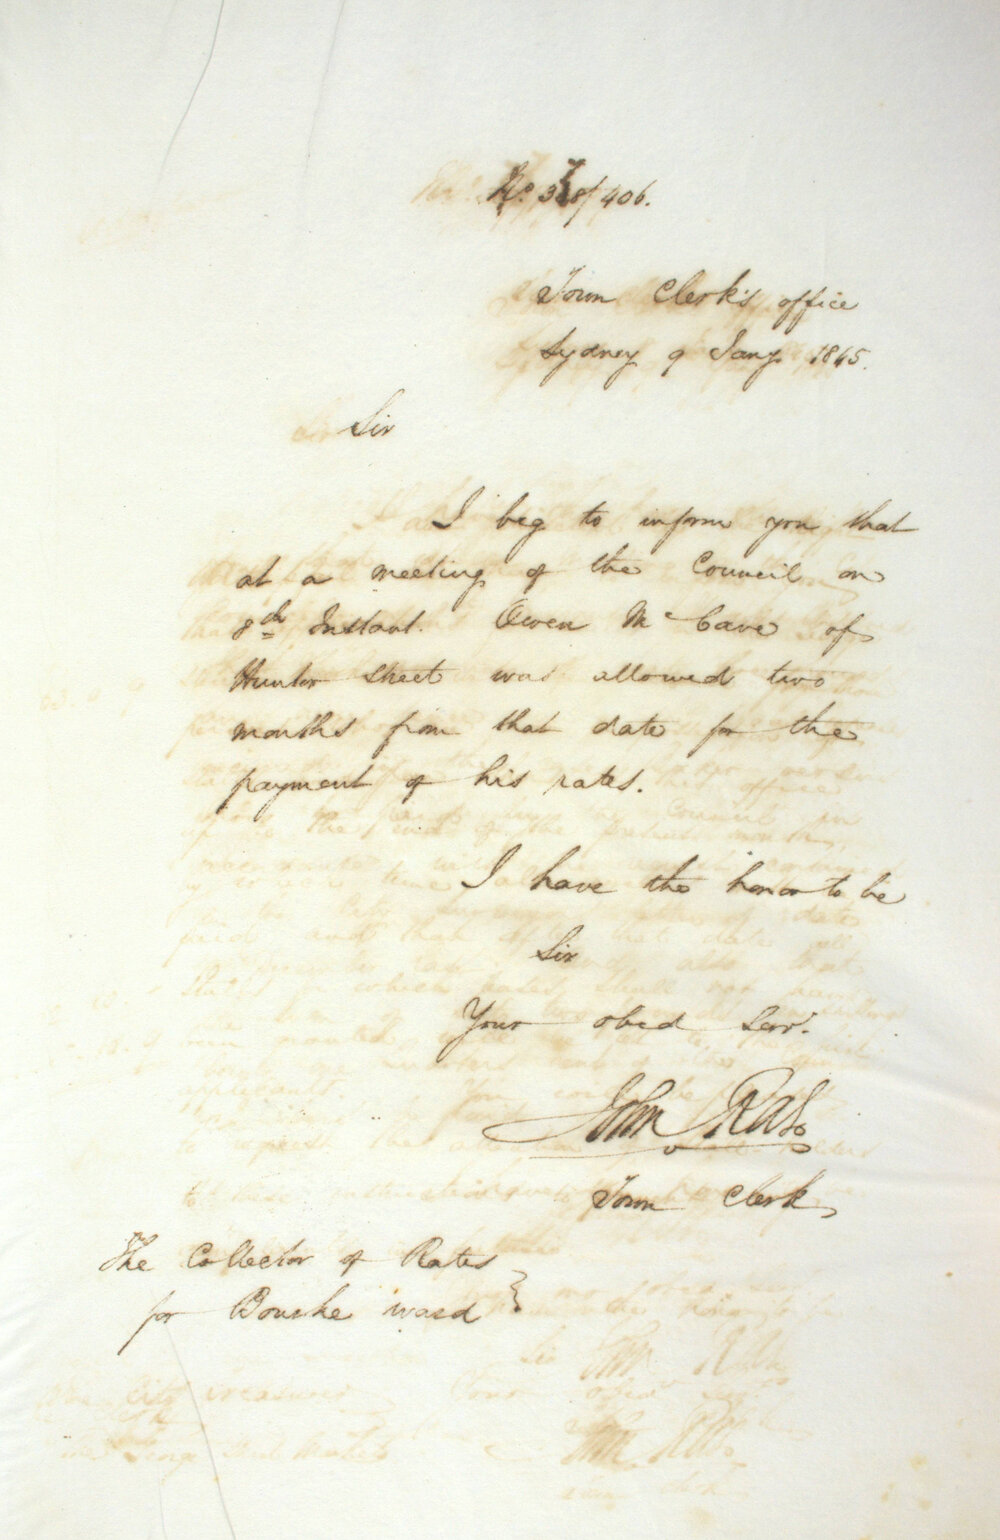 No. 378/406.
Town Clerk's office
Sydney 9 Jany. 1845.
Sir
I beg to inform you that
at a meeting of the Council on
8th Instant. Owen McCave of
Hunter Street was allowed two
months from that date for the
payment of his rates.
I have the honor to be
Sir
Your obed Servt.
John Rae
Town Clerk
The Collector of Rates
for Bourke ward }